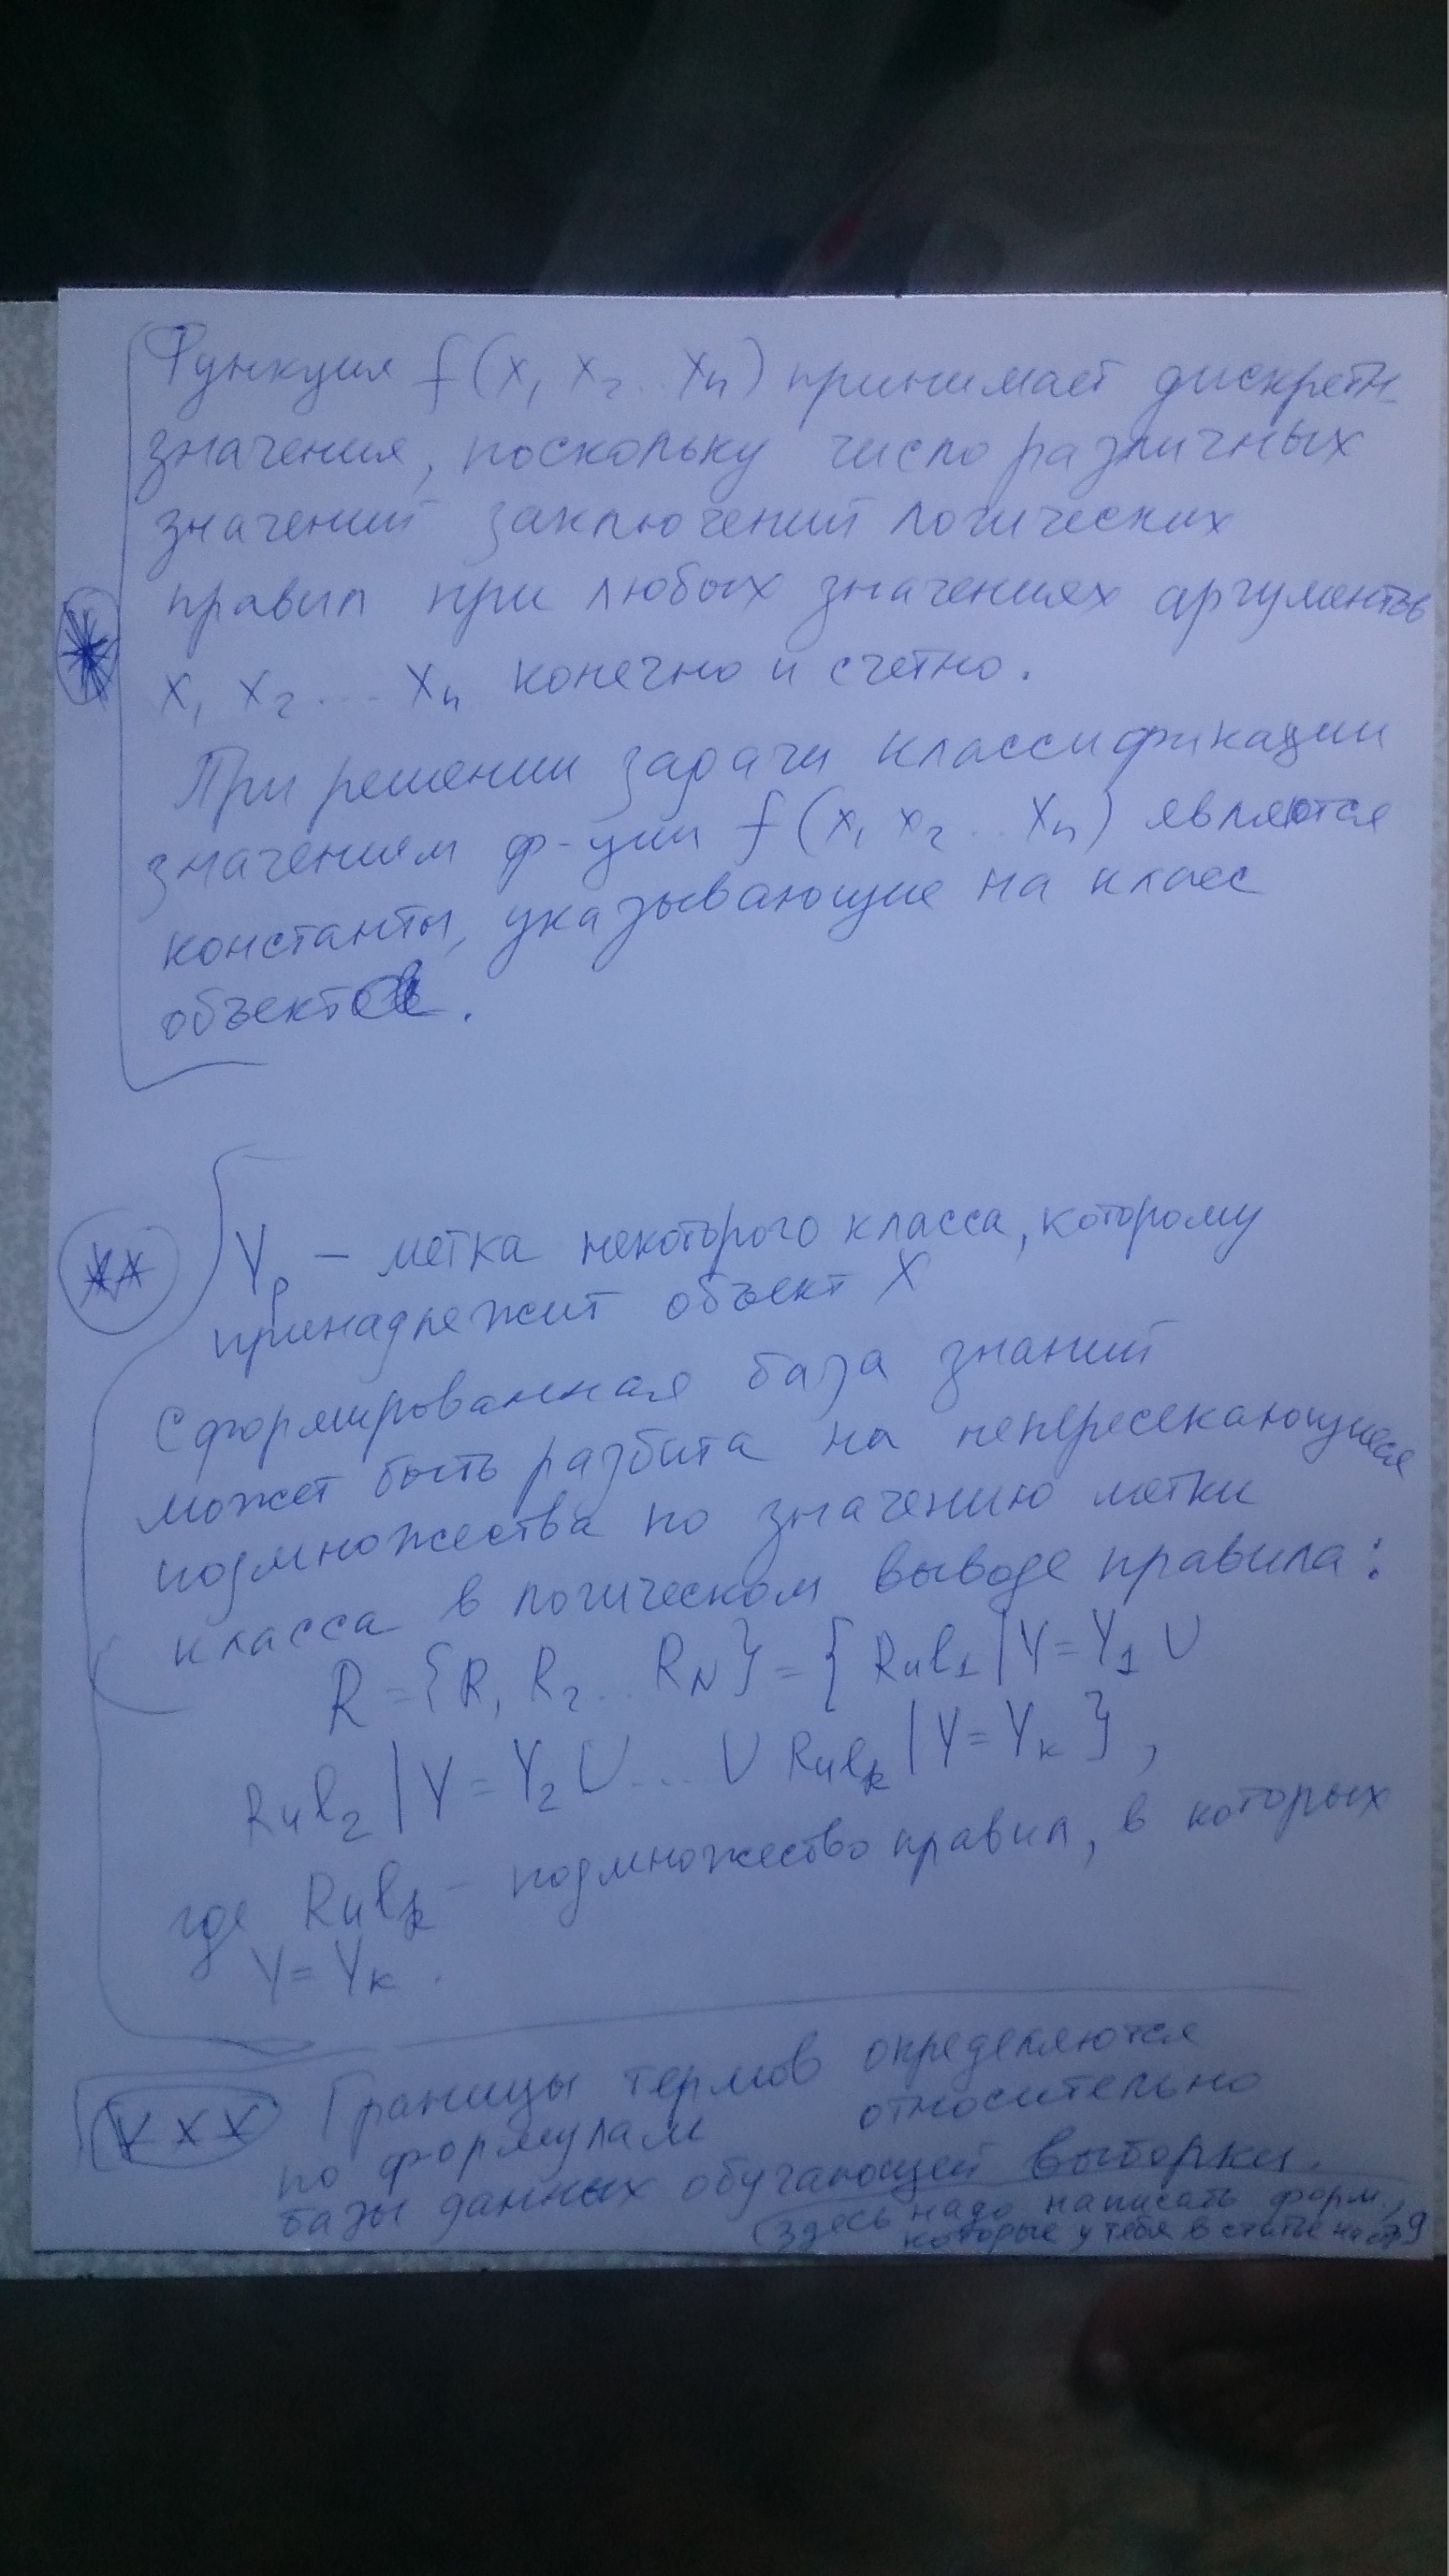 Функция f(x₁ x₂ .. xₙ) принимает дискретн
значения, поскольку число различных
значений заключений логических
правил при любых значениях аргументов
x₁ x₂ ... xₙ конечно и счетно.
При решении задачи классификации
значением ф-ции f(x₁ x₂ .. xₙ) являются
константы, указывающие на класс
объектов.
** Yₚ – метка некоторого класса, которому
принадлежит объект X
Сформированная база знаний
может быть разбита на непересекающиеся
подмножества по значению метки
класса в логическом выводе правила:
R = {R₁ R₂ .. R_N} = { Rul₁ | Y = Y₁ ∪
Rul₂ | Y = Y₂ ∪ ... ∪ Rulₖ | Y = Yₖ },
где Rulₖ – подмножество правил, в которых
Y = Yₖ.
XXX Границы термов определяются
по формулам относительно
базы данных обучающей выборки.
(здесь надо написать форм.,
которые у тебя в статье на с 79